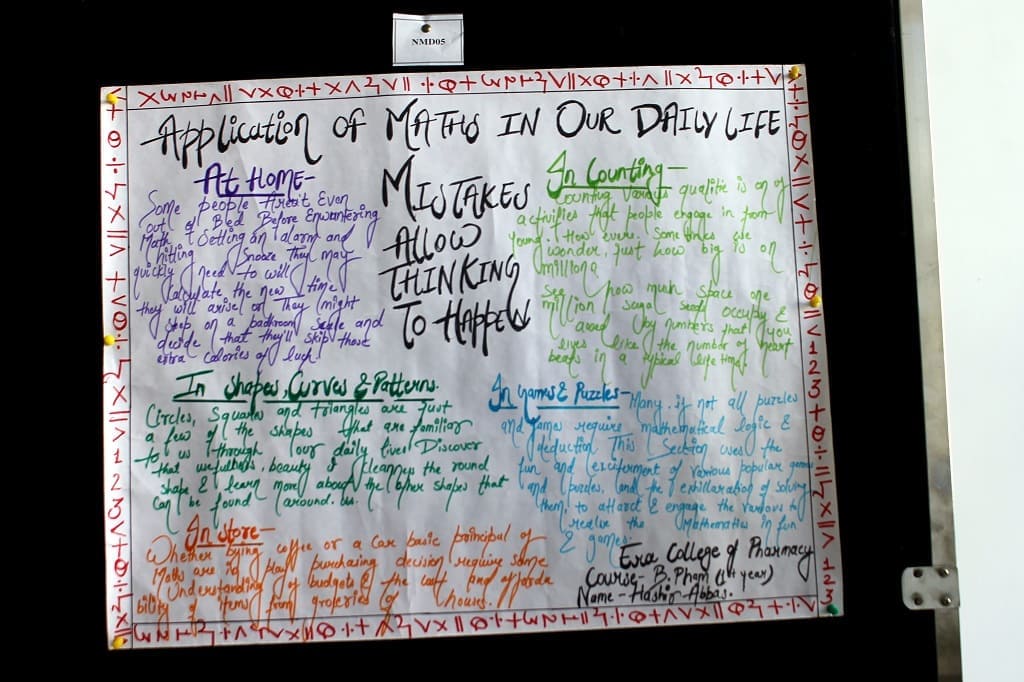 NMD05
Application of Maths in Our Daily Life
At Home-
Some people Aren't Even
out of Bed Before Enwantering
Math. Setting an alarm and
hitting Snooze They may
quickly need to will
Calculate the new time
they will arise on They might
step on a bathroom Scale and
decide that they'll skip those
extra calories of luck!
Mistakes
Allow
Thinking
To Happen
In Counting-
Counting Various qualitie is on of
activities that people engage in from
young. How ever. Some times we
wonder, Just how big is on
million
See how much space one
million seed occupy &
by numbers that you
lives like the number of heart
beats in a typical life time.
In Shapes, Curves & Patterns.
Circles, Squares and triangles are Just
a few of the shapes that are familiar
to us through our daily lives Discover
that usefullness, beauty & the round
shape & learn more about the other shapes that
can be found around us.
In games & Puzzles- Many, if not all puzzles
and games require mathematical logic &
deduction This Section uses the
fun and excitement of various popular games
and puzzles, and the exhillaration of solving
them, to attarct & engage the various to
realise the Mathematics in fun
& games.
In store-
Whether bying coffee or a Car basic principal of
Maths are in play purchasing decision require some
Understanding of budgets & the cost and afforda
bility of items from groceries of houses.
Era College of Pharmacy
Course- B. Pham (1st year)
Name - Hashir Abbas.